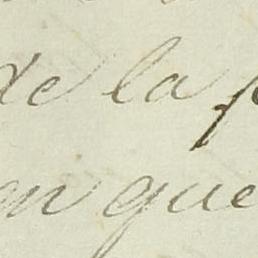 de la
en que